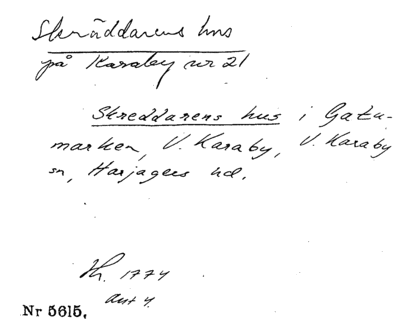 Skräddarens hus
på Karaby nr 21
Skreddarens hus i Gatu-
marken, V. Karaby, V. Karaby
sn, Harjagers hd.
Th. 1774
akt 4.
Nr 5615.